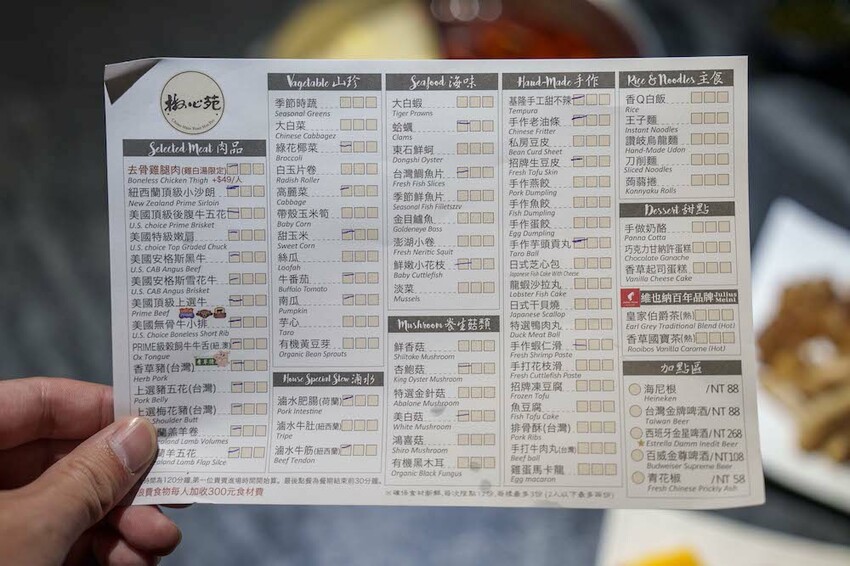 椒心苑
Selected Meat 肉品
去骨雞腿肉(雞白湯限定)
Boneless Chicken Thigh +$49/人
紐西蘭頂級小沙朗
New Zealand Prime Sirloin
美國頂級後腹牛五花
U.S. choice Prime Brisket
美國特級嫩肩
U.S. choice Top Graded Chuck
美國安格斯黑牛
U.S. CAB Angus Beef
美國安格斯雪花牛
U.S. CAB Angus Brisket
美國頂級上選牛
Prime Beef
美國無骨牛小排
U.S. Choice Boneless Short Rib
PRIME級穀飼牛牛舌(紐.澳)
Ox Tongue
香草豬(台灣)
Herb Pork
上選豬五花(台灣)
Pork Belly
上選梅花豬(台灣)
Shoulder Butt
蘭羔羊卷
Zealand Lamb Volumes
蘭羊五花
Zealand Lamb Flap Slice
Vegetable 山珍
季節時蔬
Seasonal Greens
大白菜
Chinese Cabbagez
綠花椰菜
Broccoli
白玉片卷
Radish Roller
高麗菜
Cabbage
帶殼玉米筍
Baby Corn
甜玉米
Sweet Corn
絲瓜
Loofah
牛番茄
Buffalo Tomato
南瓜
Pumpkin
芋心
Taro
有機黃豆芽
Organic Bean Sprouts
House Special Stew 滷水
滷水肥腸(荷蘭)
Pork Intestine
滷水牛肚(紐西蘭)
Tripe
滷水牛筋(紐西蘭)
Beef Tendon
Seafood 海味
大白蝦
Tiger Prawns
蛤蠣
Clams
東石鮮蚵
Dongshi Oyster
台灣鯛魚片
Fresh Fish Slices
季節鮮魚片
Seasonal Fish Filletszv
金目鱸魚
Goldeneye Bass
澎湖小卷
Fresh Neritic Squit
鮮嫩小花枝
Baby Cuttlefish
淡菜
Mussels
Mushroom 養生菇類
鮮香菇
Shiitake Mushroom
杏鮑菇
King Oyster Mushroom
特選金針菇
Abalone Mushroom
美白菇
White Mushroom
鴻喜菇
Shiro Mushroom
有機黑木耳
Organic Black Fungus
Hand-Made 手作
基隆手工甜不辣
Tempura
手作老油條
Chinese Fritter
私房豆皮
Bean Curd Sheet
招牌生豆皮
Fresh Tofu Skin
手作燕餃
Pork Dumpling
手作魚餃
Fish Dumpling
手作蛋餃
Egg Dumpling
手作芋頭貢丸
Taro Ball
日式芝心包
Japanese Fish Cake With Cheese
龍蝦沙拉丸
Lobster Fish Cake
日式干貝燒
Japanese Scallop
特選鴨肉丸
Duck Meat Ball
手作蝦仁滑
Fresh Shrimp Paste
手打花枝滑
Fresh Cuttlefish Paste
招牌凍豆腐
Frozen Tafu
魚豆腐
Fish Tafu Cake
排骨酥(台灣)
Pork Ribs
手打牛肉丸(台灣)
Beef ball
雞蛋馬卡龍
Egg macaron
Rice & Noodles 主食
香Q白飯
Rice
王子麵
Instant Noodles
讚岐烏龍麵
Hand-Made Udon
刀削麵
Sliced Noodles
蒟蒻捲
Kannyaku Rolls
Dessert 甜點
手做奶酪
Panna Cotta
巧克力甘納許蛋糕
Chocolate Ganache
香草起司蛋糕
Vanilla Cheese Cake
維也納百年品牌 Julius Meinl
皇家伯爵茶(熱)
Earl Grey Traditional Blend (Hot)
香草國寶茶(熱)
Rooibos Vanilla Carame (Hot)
加點區
海尼根 /NT 88
Heineken
台灣金牌啤酒/NT 88
Taiwan Beer
西班牙金星啤酒/NT268
Estrella Damm Inedit Beer
百威金尊啤酒/NT108
Budweiser Supreme Beer
青花椒 /NT 58
Fresh Chinese Prickly Ash
時間為120分鐘,第一位貴賓進場時間開始算。最後點餐為餐期結束前30分鐘。
浪費食物每人加收300元食材費
※確保食材新鮮,每次限點12份,每樣最多3份